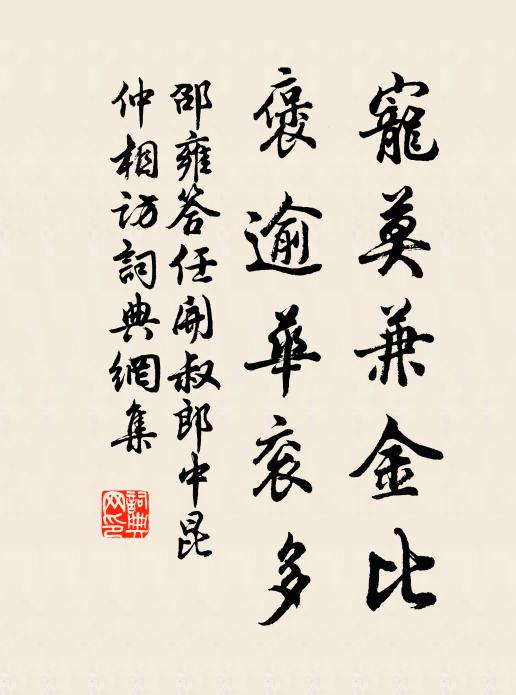 寵莫兼金比
褒逾華衮多
邵雍答任開叔郎中昆
仲相訪詞典網集
詞典
网印